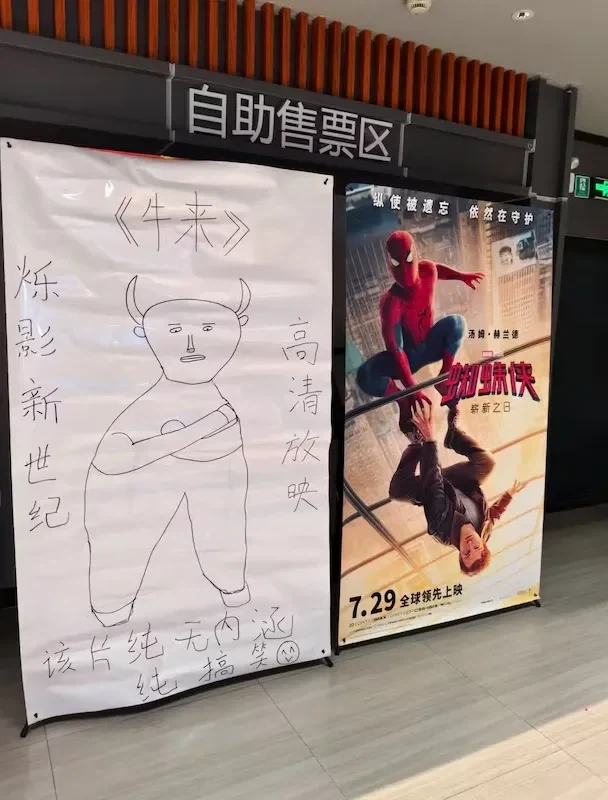 自助售票区
《牛来》
烁影新世纪
高清放映
该片纯无内涵
纯搞笑
纵使被遗忘 依然在守护
汤姆·赫兰德
蜘蛛侠
崭新之日
7.29 全球领先上映